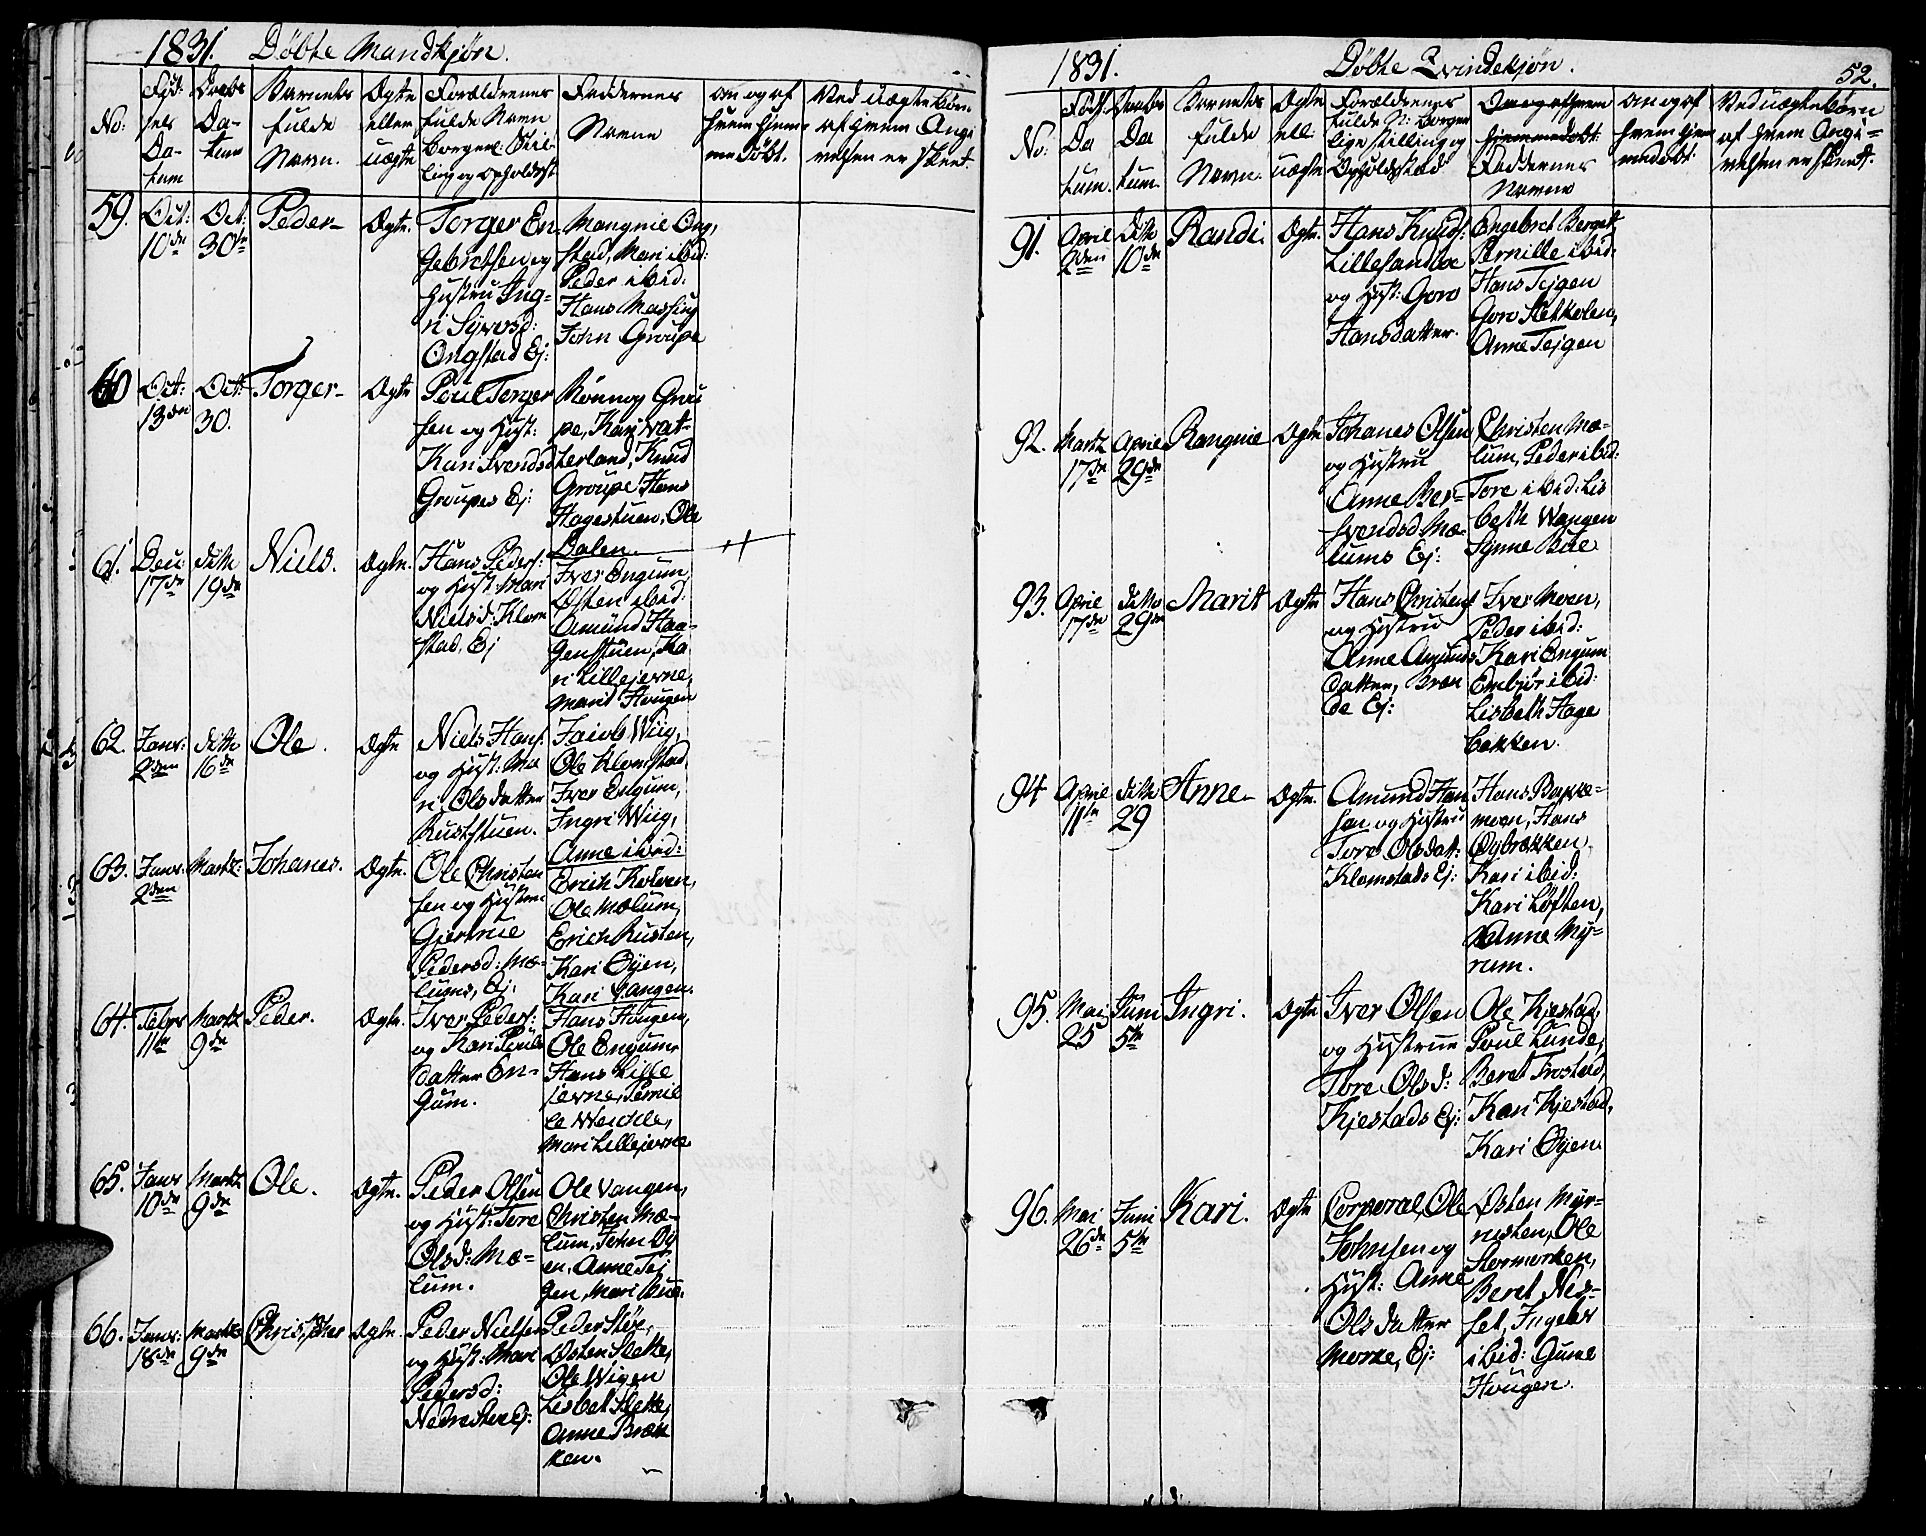 1831. Døbte Mandkjøn.
No:
Fød-
sels
Da-
tum
Daabs
Da-
tum
Barnets
fulde
Navn.
Ægte
eller
uægte
Forældrenes
fulde Navn
borgerl. Stil-
ling og Opholdsst
Faddernes
Navne
om og af
hvem hjem-
me døbt.
Ved uægte børn
af hvem Angi
velsen er skeet.
59. Oct: 10de
Oct: 30te
Peder
Ægte.
Torger En-
gebretsen og
Hustru Ing-
ri Syversd:
Ongstad Ej:
Mangnie Ong-
stad, Mari ibid:
Peder ibid:
Hans Massing
John Groupe
60 Oct: 13de
Oct: 30.
Torger
Ægte
Poul Torger
sen og Hust:
Kari Svendsd
Groupes Ej:
Rønnog Grou
pe, Kari Vat-
terland, Knud
Groupe Hans
Hagestuen, Ole
Dalen.
61. Deci 17de
ditto 19de
Niels.
Ægte.
Hans Peders:
og Hust: Mari
Nielsd: Klom
stad. Ej
Iver Engum,
Østen ibid:
Amund Haa-
genstuen, Ka
ri Lillejerne,
Marit Hougen
62. Janr: 2den
ditto 16de
Ole.
Ægte
Niels Hans:
og Hust: Ma
ri Olsdatter
Ruststuen.
Jacob Wiig,
Ole Klomstad
Iver Engum,
Ingri Wiig,
Anne ibid:
63. Janr. 2den
Martz:
Johanes.
Ægte.
Ole Christen
sen og Hustru
Giertrue
Pedersd: Mæ-
lums, Ej:
Erich Kolven,
Ole Mælum,
Erich Rusten,
Kari Øyen,
Kari Vangen.
64. Febr 11te
Martz 9de
Peder.
Ægte.
Iver Peders:
og Kari Pouls
datter En-
gum.
Hans Hougen,
Ole Engum
Hans Lille
jerne, Pernil
le Wedde,
Mari Lillejerne
65. Janr 10de
Martz 9de
Ole.
Ægte.
Peder Olsen
og Hust: Tore
Olsd: Mæ-
lum.
Ole Vangen,
Christen Mæ-
lum, John Øy
en, Anne Tej
gen, Mari Bue.
66. Janr: 18de
Martz 9de
Christopher
Ægte.
Peder Nielsen
og Hust: Mari
Pedersd:
Nedre Støe Ej:
Peder Støe,
Østen Slette,
Ole Wigen
Lisbet Slette,
Anne Bræk
ken.
1831. Døbte Qvindekjøn. 52.
No:
Føds
Da
tum.
Daabs
Da
tum.
Barnets
fulde
Navn.
Ægte
ell:
uægte
Forældrenes
fulde N: borger
lige stilling og
Opholdssted
Om og af hvem
hjemmedøbt.
Faddernes
Navne
om og af
hvem hjem
medøbt.
Ved uægte børn
af hvem Angi=
velsen er skeet.
91. April 2den
ditto 10de
Randi.
Ægte.
Hans Knuds:
Lillesandoe
og Hust: Goro
Hansdatter.
Engebret Berget,
Pernille ibid:
Hans Tejgen
Goro Sletkolen,
Anne Tejgen
92. Martz 17de
April 29de
Rangnie
Ægte
Johanes Olsen
og Hustru
Anne Ber-
svendsd Mæ-
lums Ej:
Christen Mæ-
lum, Peder ibid:
Tore ibid: Lis
beth Wangen
Synne Bue
93. April 17de
ditto 29de
Marit
Ægte
Hans Christens
og Hustru
Anne Amunds
datter, Bræn
de Ej:
Iver Moen,
Peder ibid:
Kari Engum
Embjør ibid:
Lisbeth Hage
bakken.
94 April 11te
ditto 29
Anne
Ægte.
Amund Han
sen og Hustru
Tore Olsdatt:
Klomstads Ej:
Hans Bakke-
moen, Hans
Øybrækken,
Kari ibid:
Kari Løften,
Anne Myr-
rum.
95. Mai 25
Juni 5te
Ingri.
Ægte
Iver Olsen
og Hustrue
Tore Olsd:
Kjestads Ej:
Ole Kjestad,
Poul Lunde,
Beret Frostad
Kari Kjestad,
Kari Øyen.
96. Mai 26de
Juni 5te
Kari.
Ægte
Corporal, Ole
Johnsen og
Hust: Anne
Olsdatter
Morke, Ej:
Østen Myr-
risten, Ole
Stormorken,
Beret Nes-
set, Ingebor
ibid: Gune
Hougen.